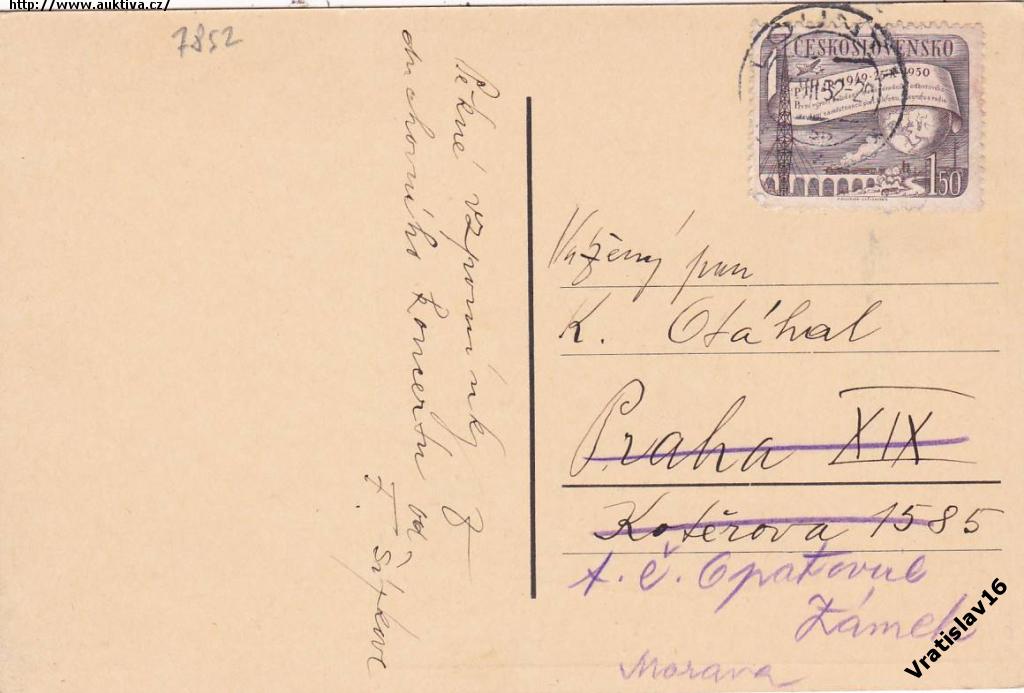 http://www.auktiva.cz/
7852
Pěkné vzpomínky z
duchovního koncertu od
F. Šížkove
LOUNY
ČESKOSLOVENSKO
1949-25-X-1950
1.50
Vážený pan
K. Otáhal
Praha XIX
Kotěrova 1585
t. č. Opatovice
Zámek
Morava
Vratislav16